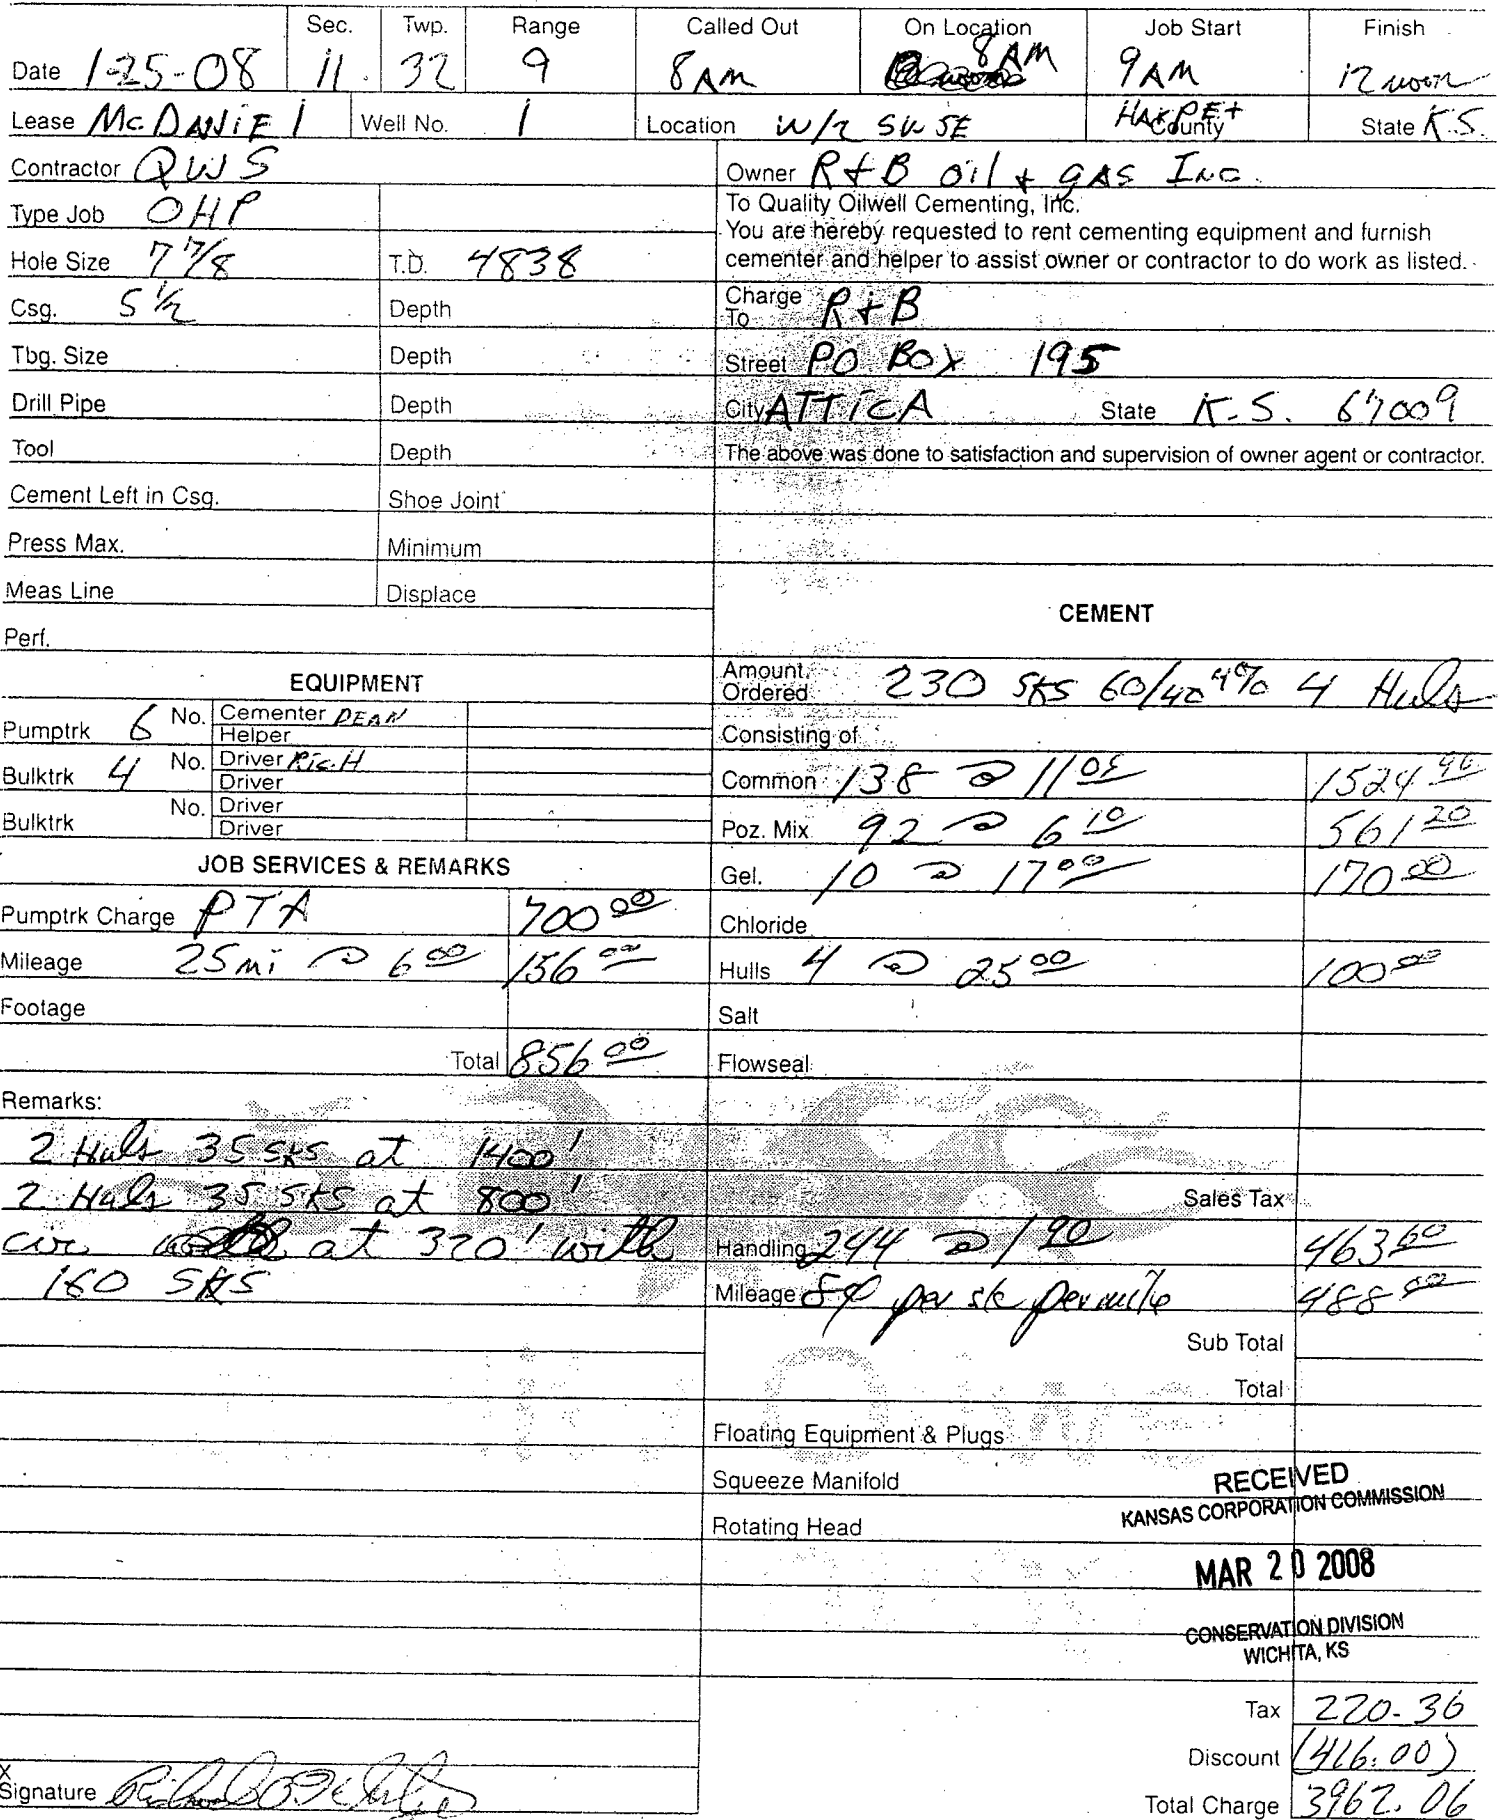 Sec. Twp. Range Called Out On Location Job Start Finish
Date 1-25-08 11 32 9 8 AM 8 AM 9 AM 12 noon
Lease McDANiEl Well No. 1 Location W/2 SW SE HARPER County State K.S.
Contractor QWS
Type Job OHP
Hole Size 7 7/8 T.D. 4838
Csg. 5 1/2 Depth
Tbg. Size Depth
Drill Pipe Depth
Tool Depth
Cement Left in Csg. Shoe Joint
Press Max. Minimum
Meas Line Displace
Perf.
EQUIPMENT
Pumptrk 6 No. Cementer DEAN
Helper
Bulktrk 4 No. Driver RicH
Driver
Bulktrk No. Driver
Driver
JOB SERVICES & REMARKS
Pumptrk Charge PTA 700 00
Mileage 25 mi @ 6 00 156 00
Footage
Total 856 00
Remarks:
2 Huls 35 sks at 1400'
2 Huls 35 SKS at 800'
circ at 320' with
160 SKS
X
Signature
Owner R+B Oil + gAS Inc.
To Quality Oilwell Cementing, Inc.
You are hereby requested to rent cementing equipment and furnish
cementer and helper to assist owner or contractor to do work as listed.
Charge To R+B
Street PO BOX 195
City ATTiCA State K.S. 67009
The above was done to satisfaction and supervision of owner agent or contractor.
CEMENT
Amount Ordered 230 SKS 60/40 4% 4 Huls
Consisting of
Common 138 @ 11 05 1524 90
Poz. Mix 92 @ 6 10 561 20
Gel. 10 @ 17 00 170 00
Chloride
Hulls 4 @ 25 00 100 00
Salt
Flowseal
Sales Tax
Handling 244 @ 1 90 463 60
Mileage 8¢ per sk per mile 488 00
Sub Total
Total
Floating Equipment & Plugs
Squeeze Manifold
Rotating Head
RECEIVED
KANSAS CORPORATION COMMISSION
MAR 20 2008
CONSERVATION DIVISION
WICHITA, KS
Tax 220.36
Discount (416.00)
Total Charge 3962.06